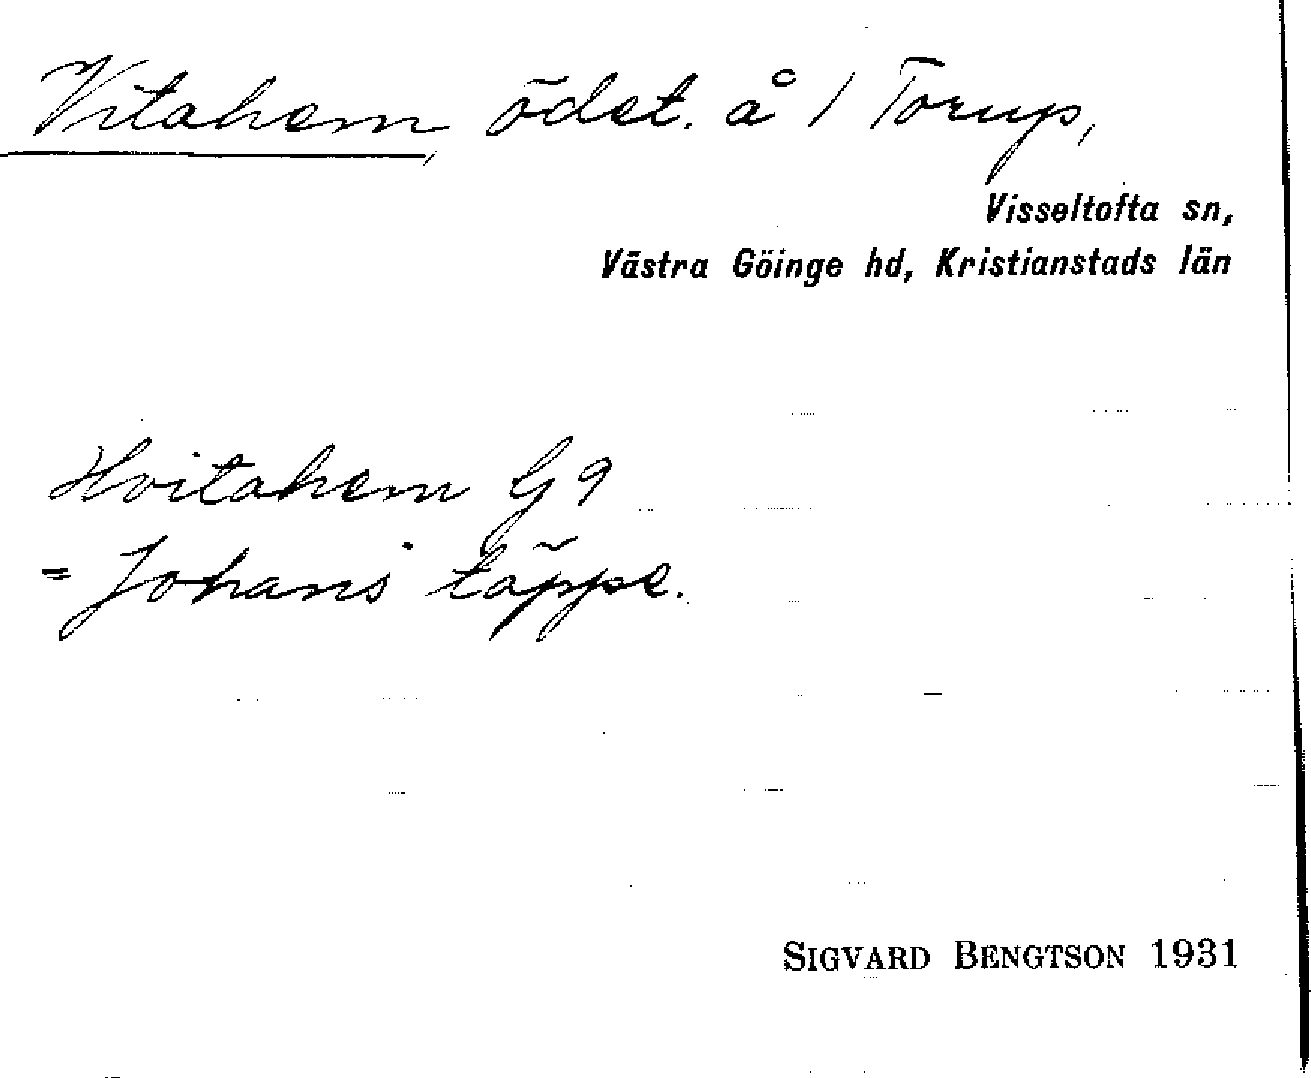 Vitahem, ödet. å 1 Torup,
Visseltofta sn,
Västra Göinge hd, Kristianstads län
Hvitahem G 9
= Johans täppe.
SIGVARD BENGTSON 1931